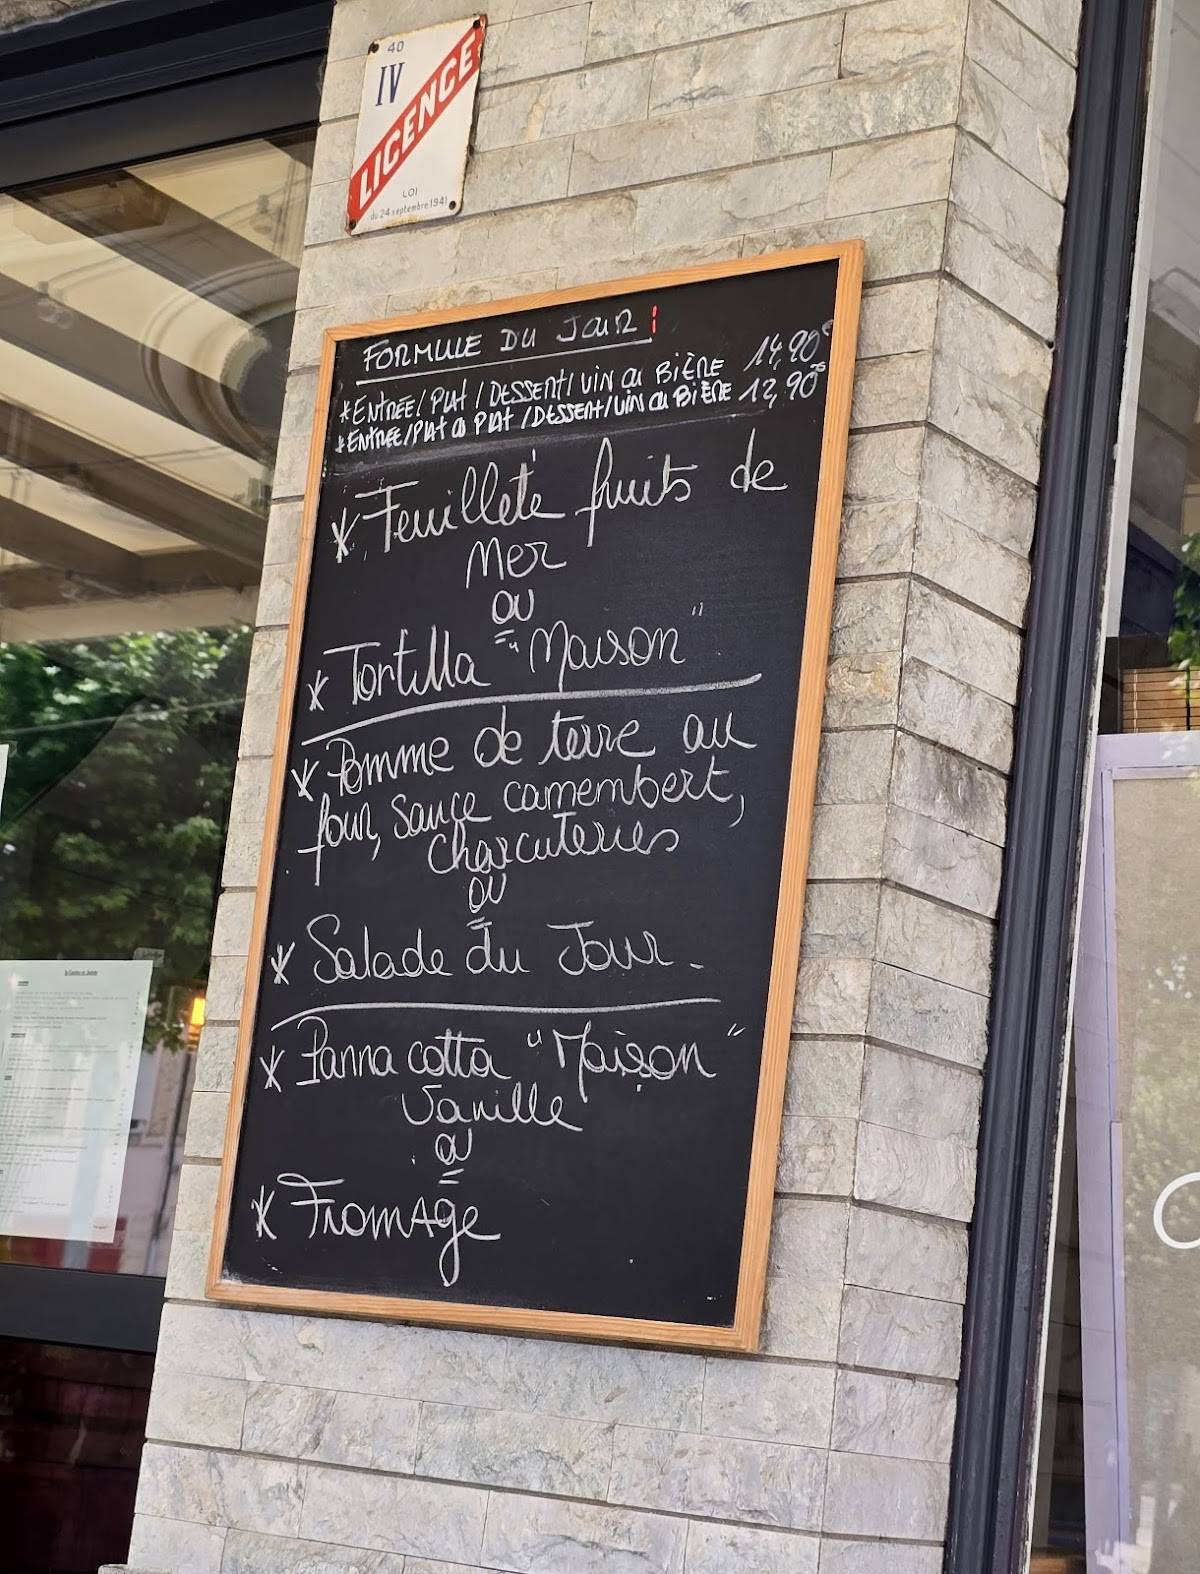 40
IV
LICENCE
LOI
du 24 septembre 1941
FORMULE DU JOUR !
*ENTRÉE/ PLAT / DESSERT/ VIN OU BIÈRE 14,90€
*ENTRÉE/PLAT OU PLAT /DESSERT/VIN OU BIÈRE 12,90€
* Feuilleté fruits de
Mer
ou
* Tortilla "Maison"
* Pomme de terre au
four, sauce camembert,
charcuteries
ou
* Salade du Jour.
* Panna cotta "Maison"
Vanille
ou
* Fromage